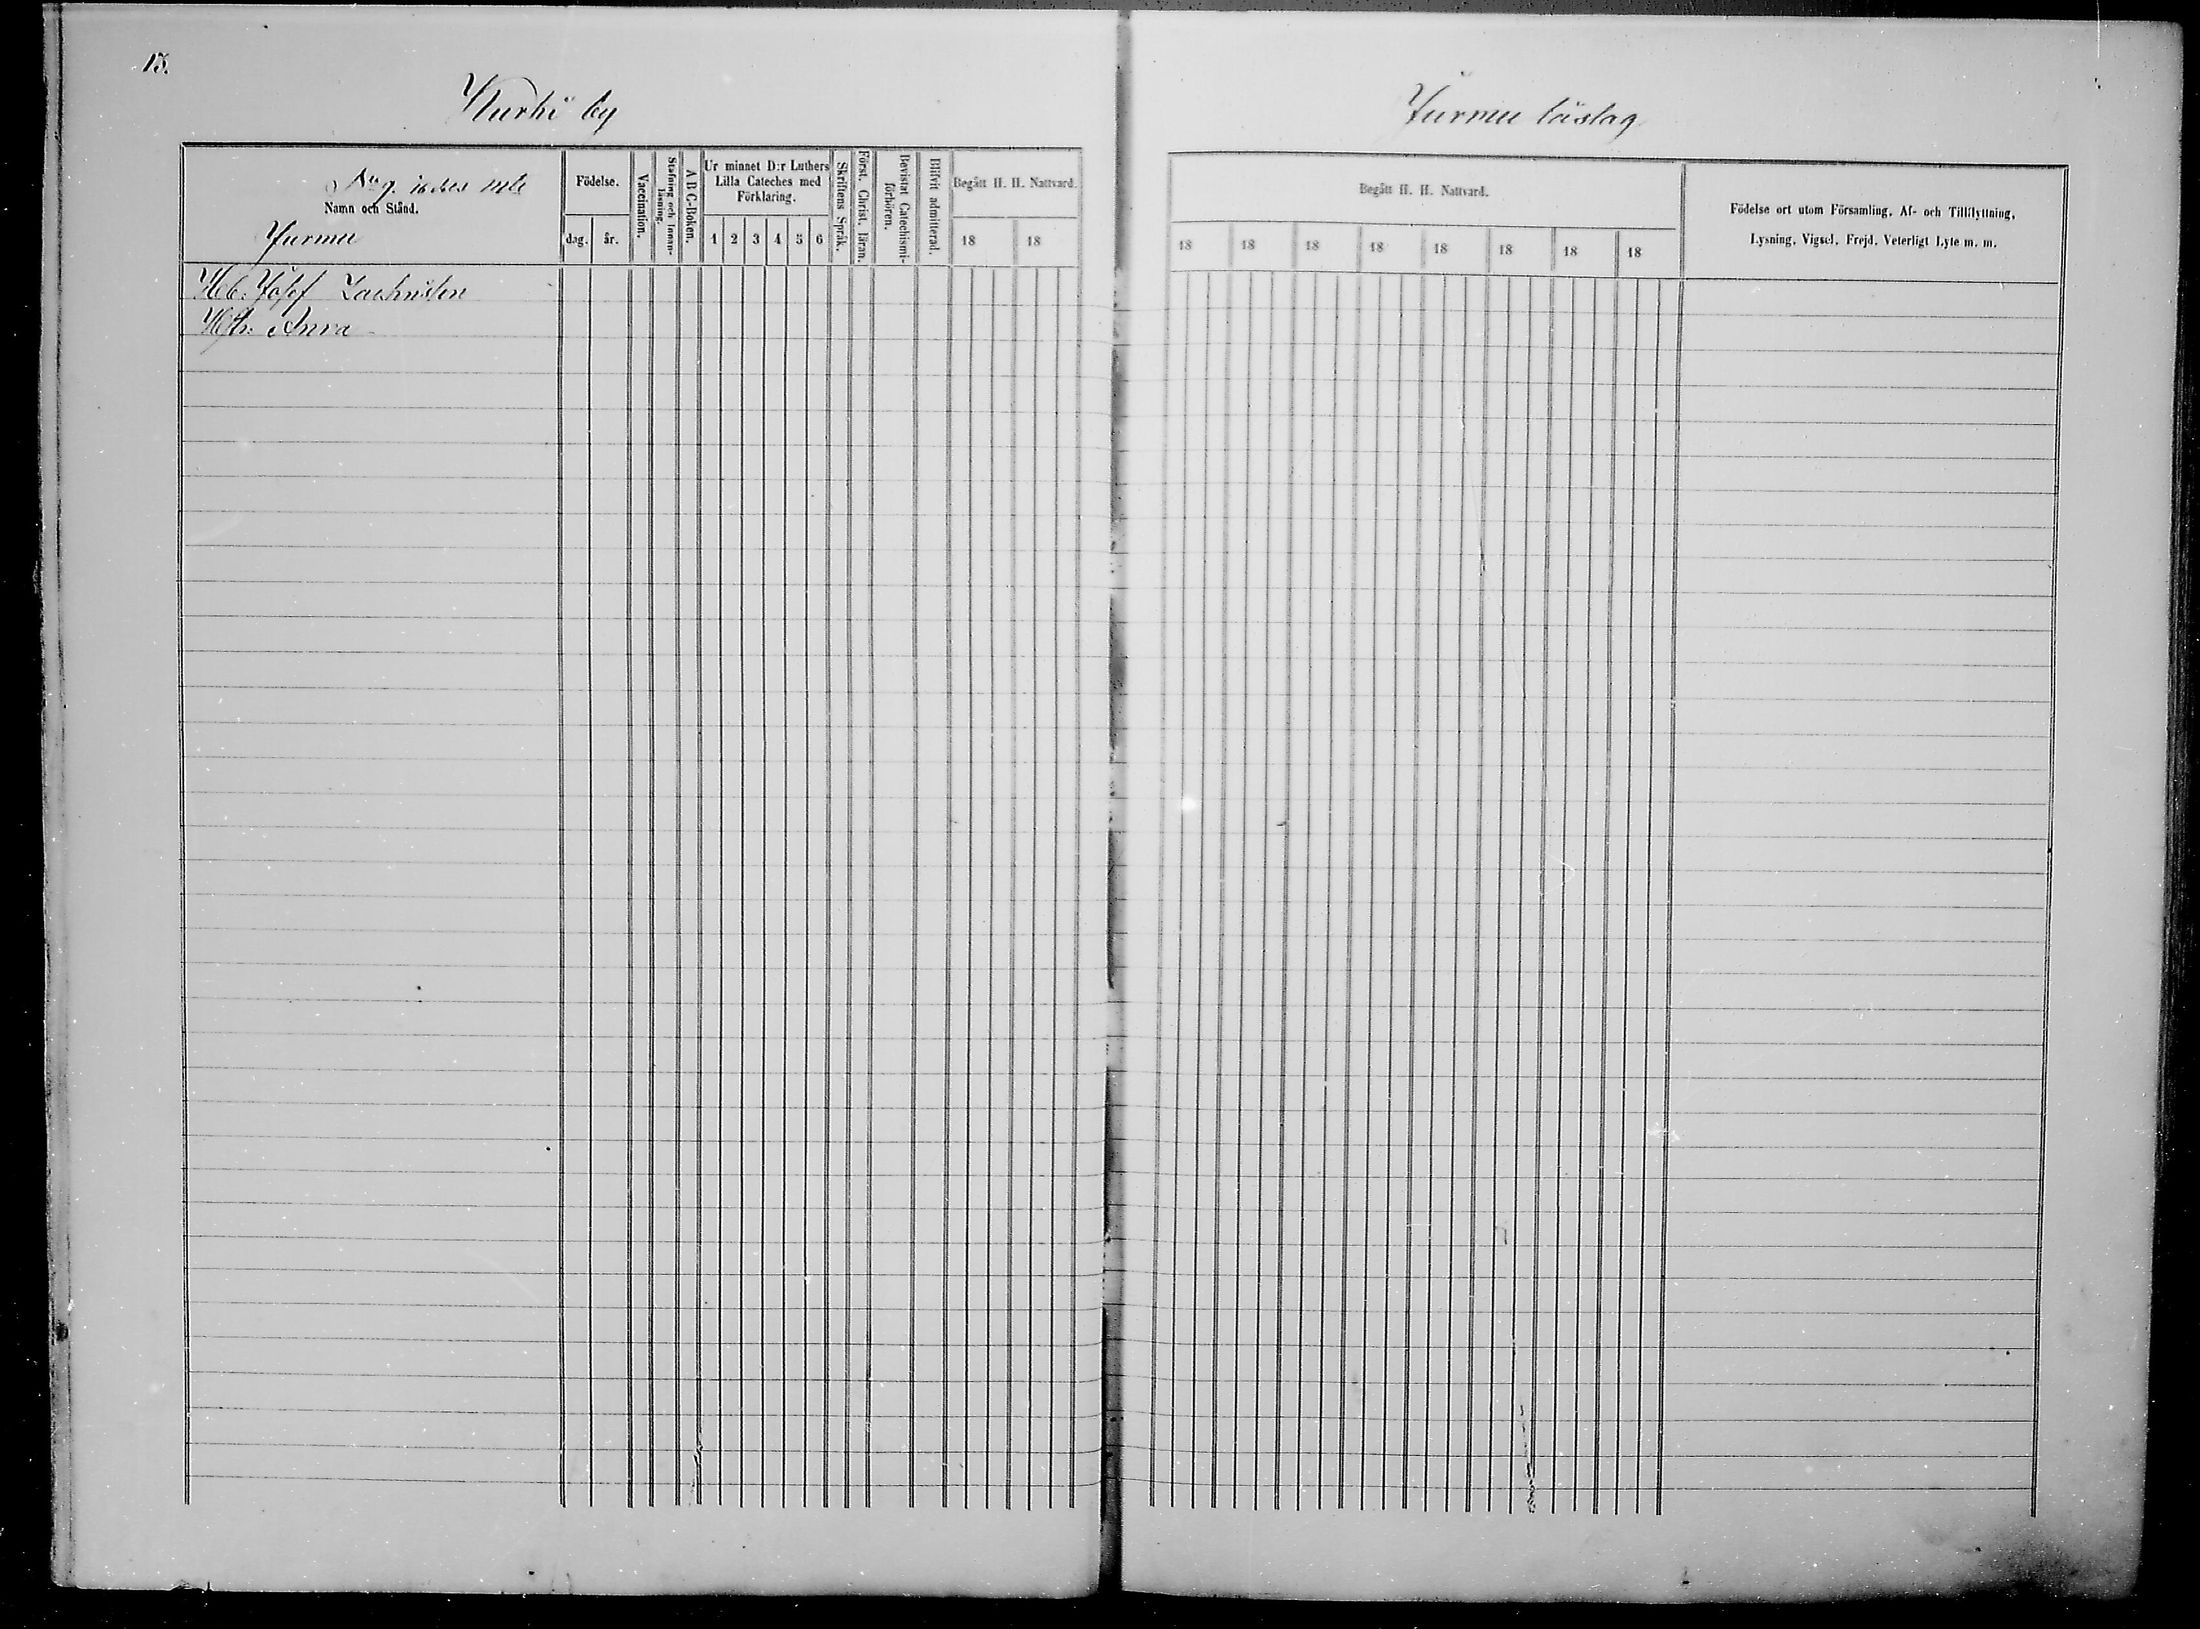 13.
Kurki by
Jurmu läslag
Namn och Stånd.
Jurmu
Födelse.
dag. år.
Vaccination.
Stafning och Innanläsning.
A B C-Boken.
Ur minnet D:r Luthers
Lilla Cateches med
Förklaring.
1 2 3 4 5 6
Skriftens Språk.
Först. Christ. läran.
Bevistat Catechismiförhören.
Blifvit admitterad.
Begått H. H. Nattvard.
18 18
Begått H. H. Nattvard.
18 18 18 18 18 18 18 18
Födelse ort utom Församling, Af- och Tillflyttning,
Lysning, Vigsel, Frejd, Veterligt Lyte m. m.
Josef
Hu. Anna